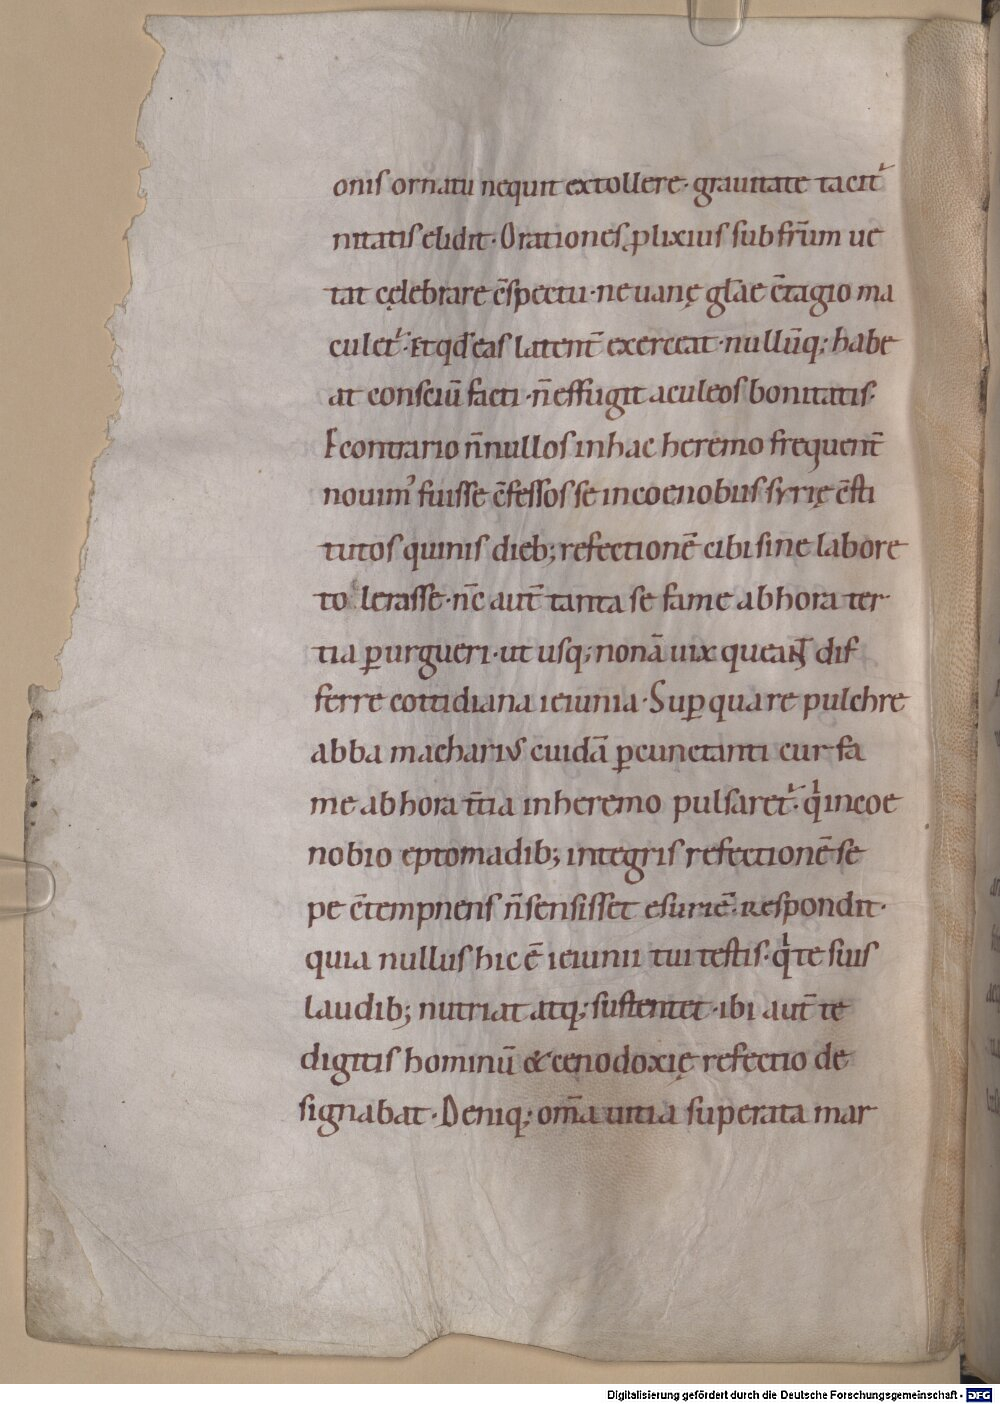 onis ornatu nequit extollere· grauitate tacit᷑
nitatis elidit· Orationes ꝓlixius sub fr̄um ue
tat cęlebrare c̄spectu· ne uanę gl̄ae c̄tagio ma
culet᷑· Et qđ eas latent̄ exerceat· nullūq; habe
at consciū facti· n̄ effugit aculeos bonitatis·
Econtrario n̄nullos in hac heremo frequent̄
nouim᾽ fuisse c̄fessos se in coenobiis syrię c̄sti
tutos quinis dieb; refectionē cibi sine labore
to lerasse· n̄c aut̄ tanta se fame ab hora ter
tia ꝑurgueri· ut usq; nonā uix queant̄ dif
ferre cottidiana ieiunia· Suꝑ qua re pulchre
abba macharius cuidā ꝑcunctanti cur fa
me ab hora t̄tia in heremo pulsaret᷑· qͥ in coe
nobio eptomadib; integris refectionē se
pe c̄tempnens n̄ sensisset esuriē· Respondit·
quia nullus hic ē ieiunii tui testis· qͥ te suis
laudib; nutriat atq; sustentet· ibi aut̄ te
digitis hominū & cenodoxię refectio de
signabat· Deniq; om̄a uitia superata mar
Digitalisierung gefördert durch die Deutsche Forschungsgemeinschaft - DFG